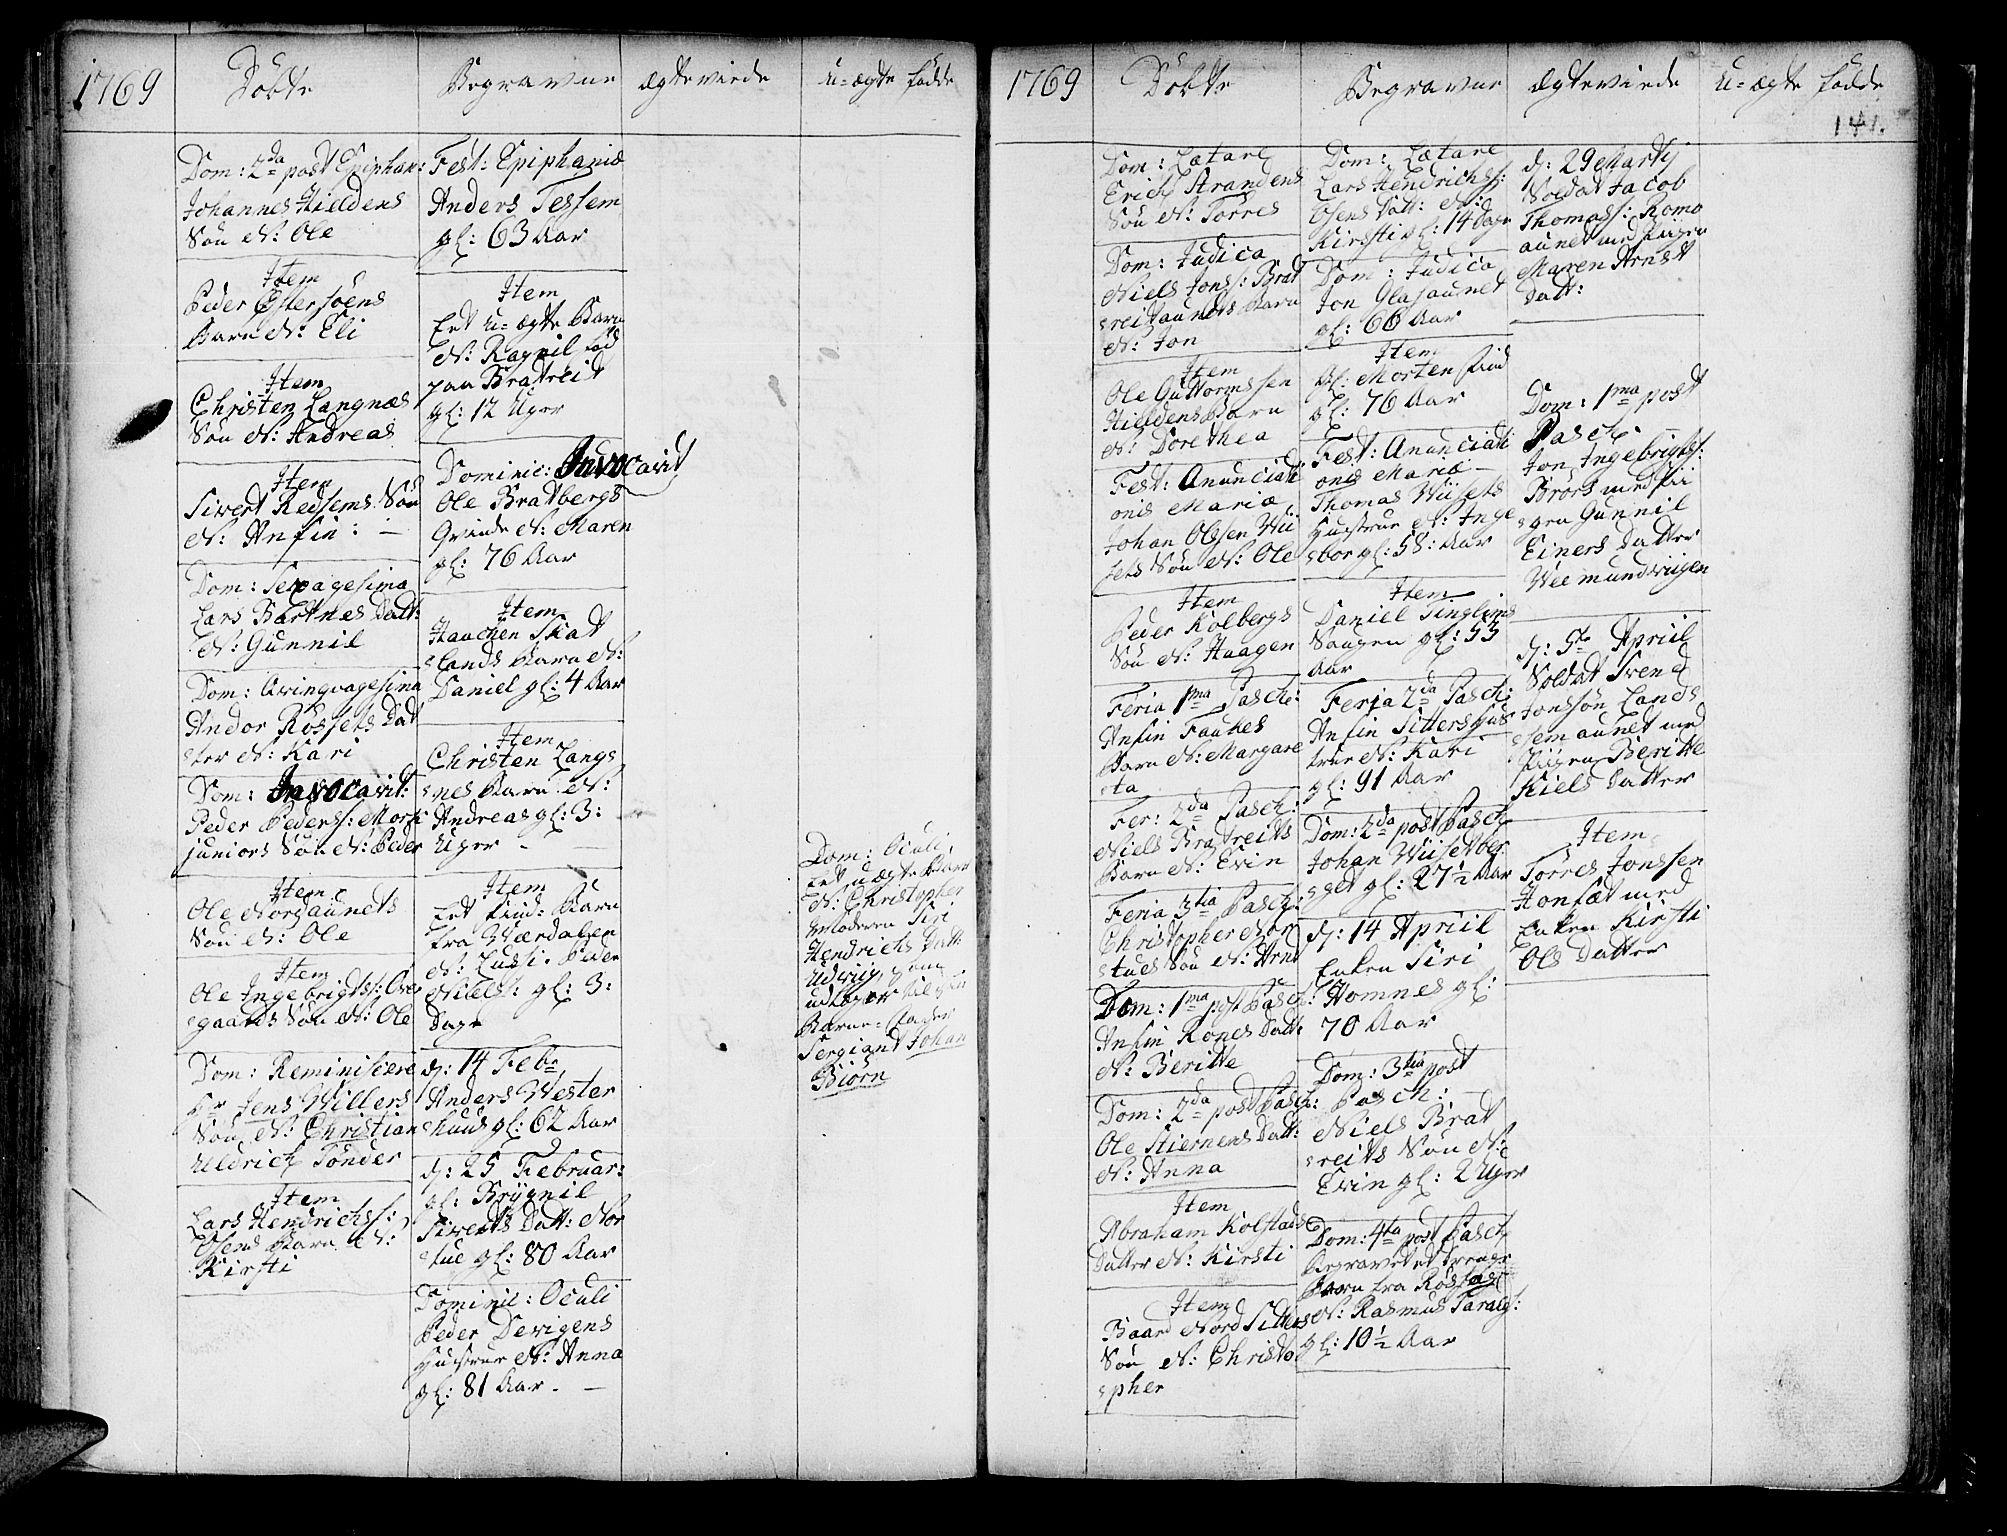 1769
Döbte
Dom: 2da post Epiphan:
Johannes Hieldens
Søn N: Ole
Item
Peder Østersøens
Barn N: Eli
Item
Christen Langnæs
Søn N: Andreas
Item
Sivert Reissems Søn
N: Anfin: -
Dom: Sexagesima
Lars Bartnes Datt:
N: Gunnil
Dom: Qvinqvagesima
Andor Røssets Dat
ter N: Kari
Dom: Invocavit:
Peder Peders: Mork
juniors Søn N: Peder
Item
Ole Nordaunets
Søn N: Ole
Item
Ole Ingebrigts: Over
gaards Søn N: Ole
Dom: Reminiscere
Hr Jens Willers
Søn N: Christian
Uldrich Tønder
Item
Lars Hendrichs:
Øsens Barn N:
Kirsti
Begravne
Fest: Epiphaniæ
Anders Tessem
gl: 63 Aar
Item
Eet u-ægte Barn
N: Ragnil fød
paa Bratreit
gl: 12 Uger
Dominic: Invocavit
Ole Bratbergs
Qvinde N: Maren
gl: 76 Aar
Item
Haachen Skat
lands Barn N:
Daniel gl: 4 Aar
Item
Christen Langs
nes Barn N:
Andreas gl: 3:
Uger -
Item
Eet Barn
fra Wærdalen
N: Lussi. Peder
Niels: gl: 3:
Dage
d: 14 Febr
Anders Wester
huus gl: 62 Aar
d: 25 Februar:
gl: Brygnil
Siverts Datt: Nor
tue gl: 80 Aar
Dominic: Oculi
Peder Devigens
Hustrue N: Anna
gl: 81 Aar. -
Ægteviede
U-ægte fødde
Dom: Oculi,
Eet uægte Barn
N: Christopher
Moderen Siri
Hendrichs Datt:
Udviig, som
udlagde til sin
Barne-fader
Sergiant Johan
Biørn
1769
Döbte
Dom: Lætare
Erich Strandens
Søn N: Torres
Dom: Judica
Niels Jons: Brat
reitaunets Barn
N: Jon
Item
Ole Guttormssen
Hieldens Barn
N: Dorethea
Fest: Anunciati
onis Mariæ
Johan Olssen Wii
sets Søn N: Ole
Item
Peder Kolbergs
Søn N: Haagen
Feria 1ma Pasch:
Anfin Faukes
Barn N: Margare
ta
Fer: 2da Pasch:
Niels Bratreits
Barn N: Evin
Feria 3tia Pasch:
Christopher Nor
stues Søn N: Arnt
Dom: 1ma post Pasch:
Anfin Rones Datt:
N: Beritte
Dom: 2da post Pasch:
Ole Stiernens Datt:
N: Anna
Item
Abraham Kolstads
Datter N: Kirsti
Item
Baard Nord Sitters
Søn N: Christo
pher
Begravne
Dom: Lætare
Lars Hendrichs:
Øsens Datt: N:
Kirsti gl: 14 Dage
Dom: Judica
Jon Glasaunet
gl: 66 Aar
Item
gl: Morten
gl: 76 Aar
Fest: Anunciati
onis Mariæ -
Thomas Wiisets
Hustrue N: Inge
bor gl: 58: Aar
Item
Daniel Tinglims
Saugen gl: 53
Aar
Feria 2da Pasch:
Anfin Sitters Hus
true N: Kari
gl: 91 Aar
Dom: 2da post Pasch
Johan Wiisetber
get gl: 27½ Aar
d: 14 Apriil
Enken Siri
Homnes gl:
70 Aar
Dom: 3tia post
Pasch:
Niels Brat
reits Søn N:
Evin gl: 2 Uger
Dom: 4ta post Pasch
begravet et Drenge
Barn fra Røsset
N: Rasmus Tarals:
gl: 10½ Aar
Ægteviede
d: 29 Martij
Soldat Jacob
Thomass: Romo
aunet med Pigen
Maren Arnst
Datt:
Dom: 1ma post
Pasch:
Jon Ingebrigts:
Brørs med Pii
gen Gunnil
Einers Datter
Weemundviigen
d: 5te Apriil
Soldat Svend
Jonssøn Lands
emaunet med
Piigen Beritte
Kiels Datter
Item
Torres Jonssen
Honsæt med
Enken Kirsti
Ols Datter
U-ægte fødde
141.